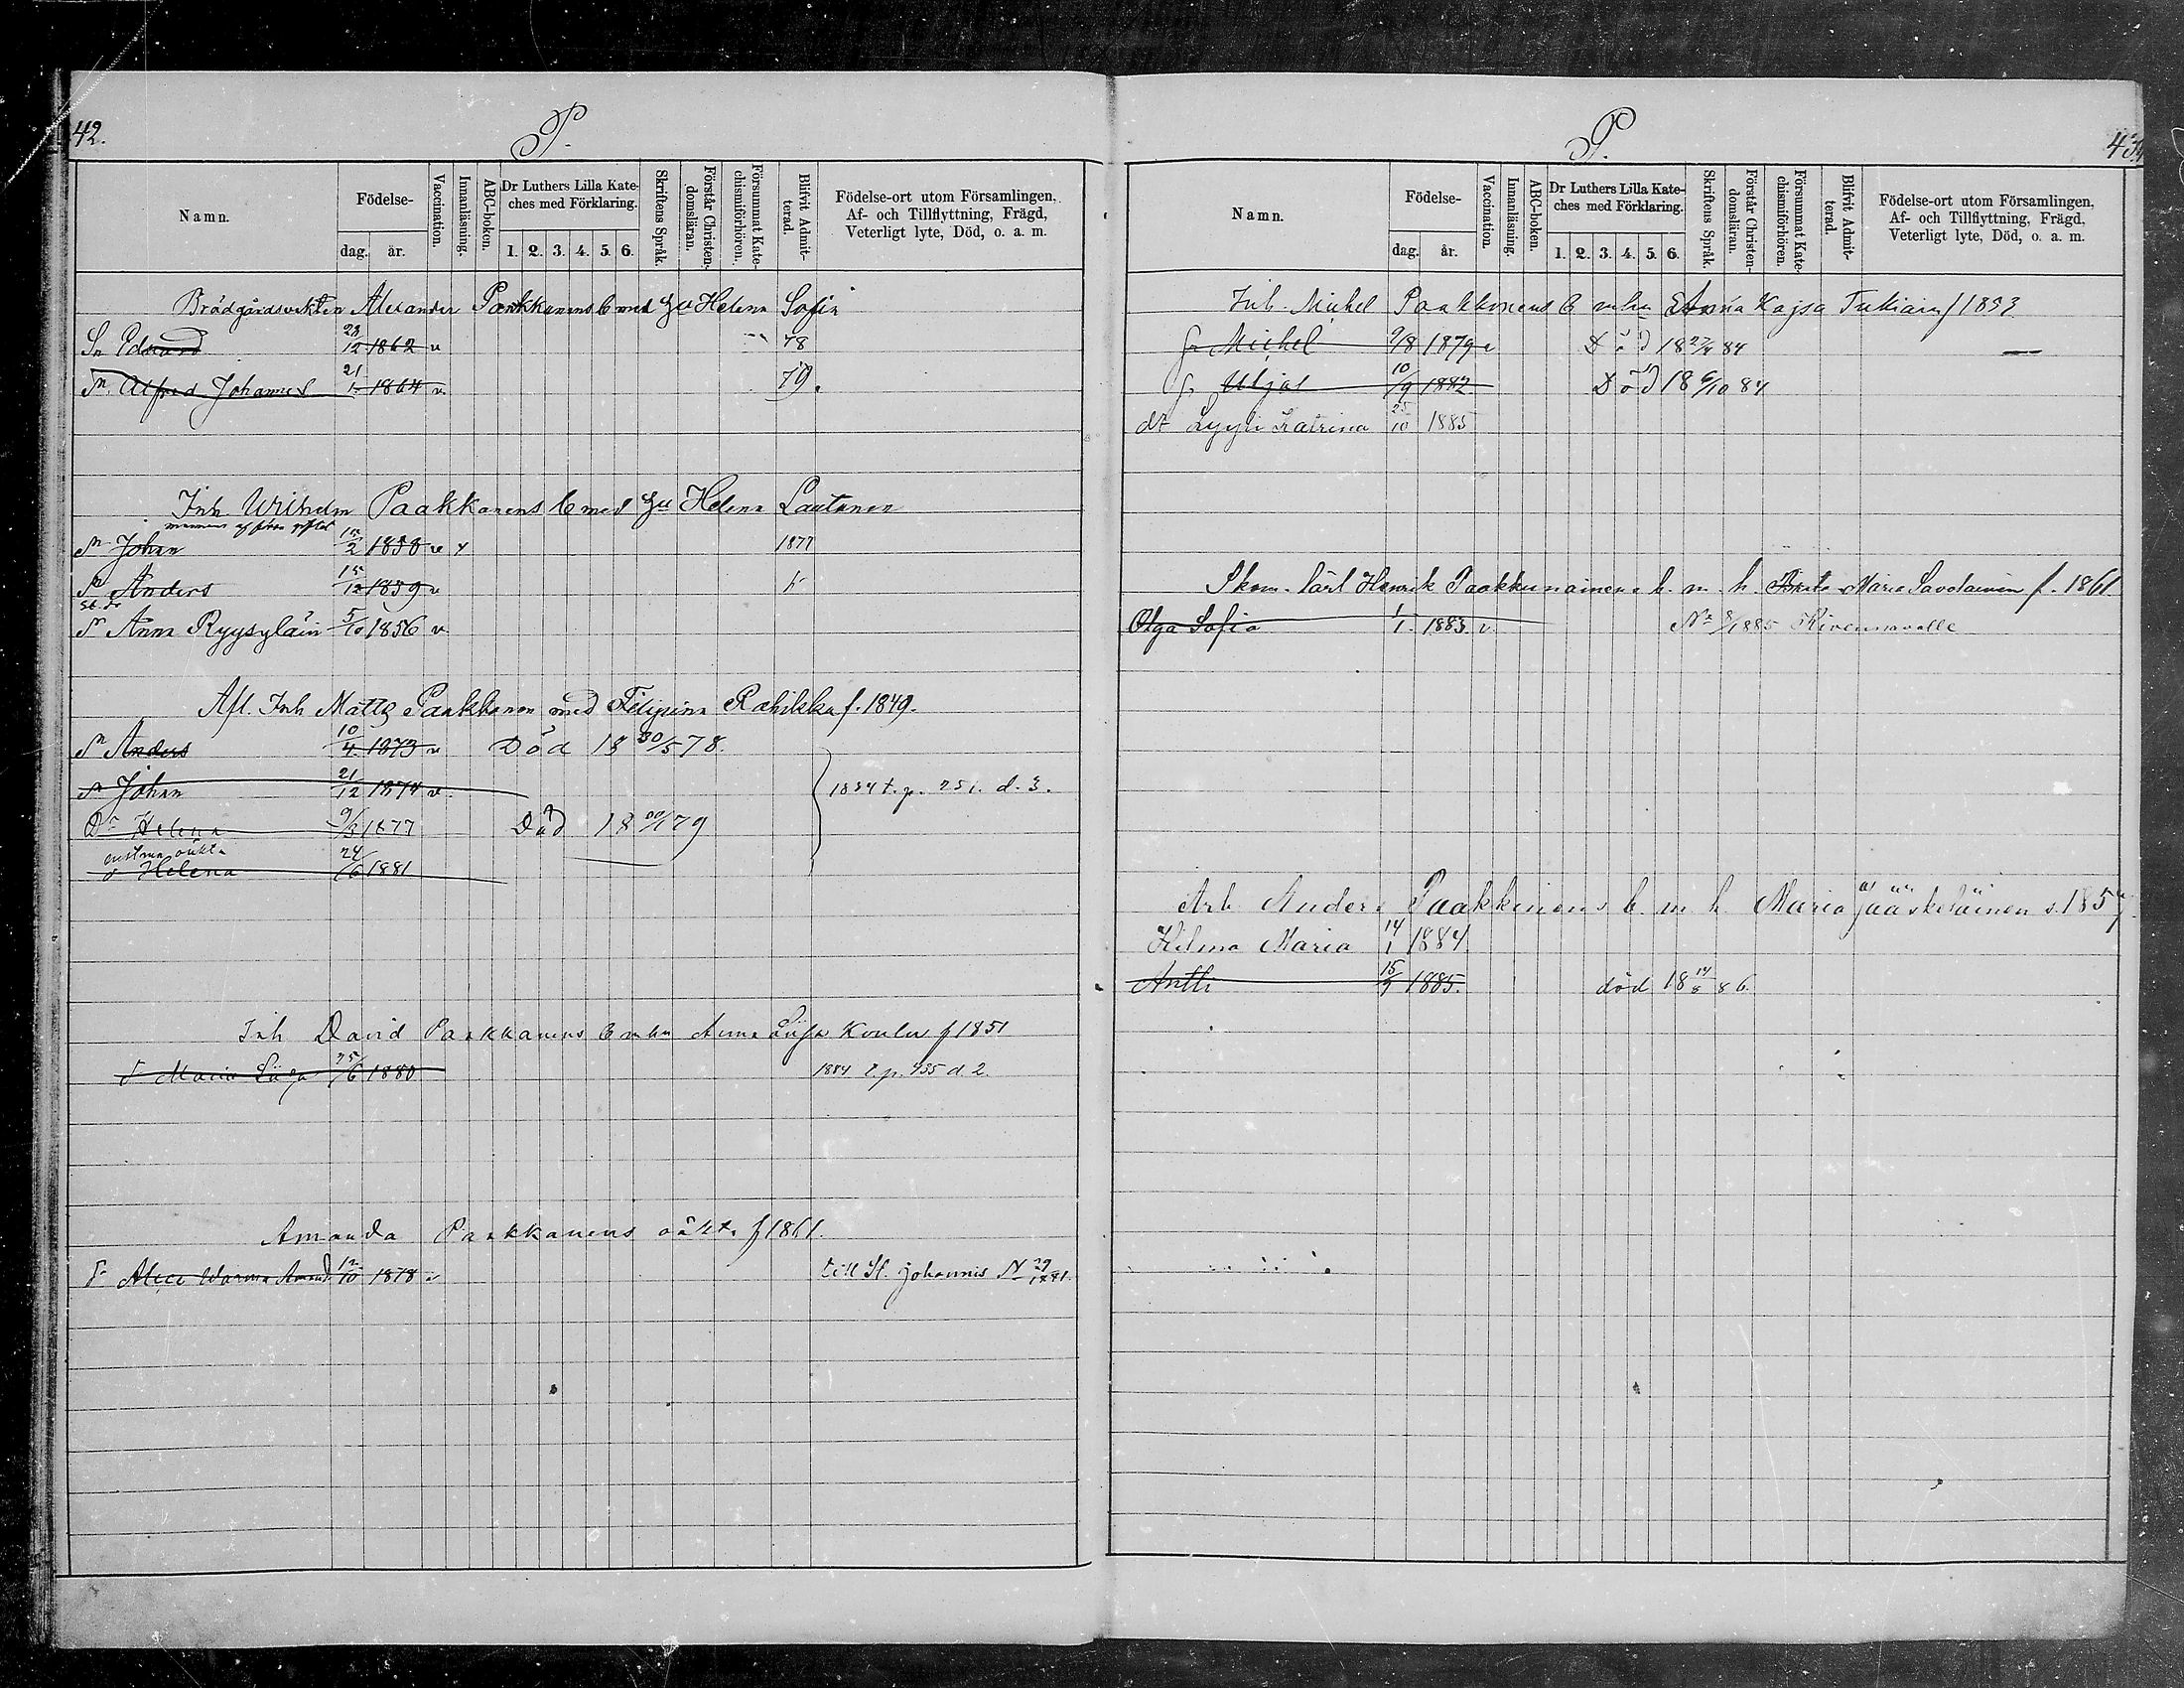 42.
P.
Namn.
Födelse-
dag.
år.
Vaccination.
Innanläsning.
ABC-boken.
Dr Luthers Lilla Kate-
ches med Förklaring.
1. 2. 3. 4. 5. 6.
Skriftens Språk.
Förstår Christen-
domsläran.
Försummat Kate-
chismiförhören.
Blifvit Admit-
terad.
Födelse-ort utom Församlingen,
Af- och Tillflyttning, Frägd,
Veterligt lyte, Död, o. a. m.
Alexander Paakkanens b med Helena Sofia
Sn Edvard 12 1862 v 78
Sn Alfred Johannes 21/1 1864 v 79.
Inh. Wilhelm Paakkanens b med Helena Lautanen
Sn Johan 2 1858 v 1877
Sn Anders 15/12 1859 v
Anna Ryysyläin 5/10 1856 v
Afl. Inh Matts Paakkanen med Filipina Rahikka f. 1849.
Sn Anders 10/4 1873 v Död 18 30/5 78.
Sn Johan 21/12 1874 v 1884 t. p. 251. d. 3.
Dr Helena 9/3 1877 Död 79
oäkta
Helena 24/6 1881
Inh David Paakkanens b mhu Anna Liisa f 1851
Maria Liisa 25/6 1880 1884 t. p. 435 d. 2.
Amanda Paakkanens oäkt. f 1861.
Alice Warma Amand. 12/10 1878 v till St. Johannis N 29 1881.
43.
P.
Namn.
Födelse-
dag.
år.
Vaccination.
Innanläsning.
ABC-boken.
Dr Luthers Lilla Kate-
ches med Förklaring.
1. 2. 3. 4. 5. 6.
Skriftens Språk.
Förstår Christen-
domsläran.
Försummat Kate-
chismiförhören.
Blifvit Admit-
terad.
Födelse-ort utom Församlingen,
Af- och Tillflyttning, Frägd,
Veterligt lyte, Död, o. a. m.
Inh. Michel Paakkonens b mhu Anna Kajsa Tukiain f 1853
Michel 9/8 1879 v Död 18 27/4 84
Uljas 10/9 1882 Död 18 6/10 84
dt Lyyli Katrina 25/10 1885
Skom. lärl Henrik Paakkunainens b. m. h. Maria Savolainen f. 1861
Olga Sofia 1/1. 1883. v. No 8/1885 Kivennavalle
Arb. Anders Paakkinens b. m. h. Maria Jääskeläinen s. 1857.
Hilma Maria 14/1 1884
Antti 15/9 1885. död 18 14/8 86.